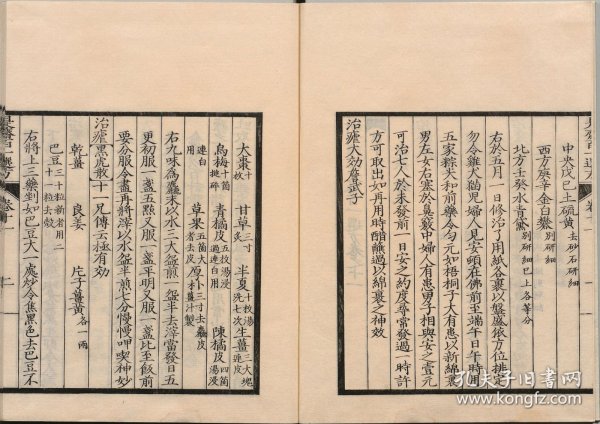 中央戊己土硫黃去砂石研細
西方庚辛金白礬別研細
北方壬癸水青黛別研細已上各等分
右於五月一日修治了用紙各裹以盤盛依方位排定
勿令雞犬猫兒婦人見安頓在佛前至端午日午時用
五家粽尖和前藥令勻元如梧桐子大有患以新綿裹
男左女右塞於鼻竅中婦人有患男子相與安之壹元
可治七人於未發前一日安之約度尋常發過一時許
方可取出如再用時醋蘸過以綿裹之神效
治瘧大効詹武子
大棗十枚 甘草三寸炙 半夏十枚湯洗七次 生薑三大塊連皮
烏梅十箇搥碎 青橘皮五枚湯浸過連白用 陳橘皮四箇湯浸
連白 草果五箇大者去皮 厚朴三寸去麄皮薑汁製
右九味為麄末以水二大盌煎一盌半去滓當發日五
更初服一盞五㸃又服一盞平明又服一盞比至飯前
要分服令盡再將滓以水一盌半煎七分慢慢呷喫神妙
治瘧黑虎散十一兄傳云極有効
乾薑 良姜 片子薑黃各一兩
巴豆三十粒新者用二十一粒去殻
右將上三藥剉如巴豆大一處炒令焦黑色去巴豆不
孔夫子旧書网
www.kongfz.com